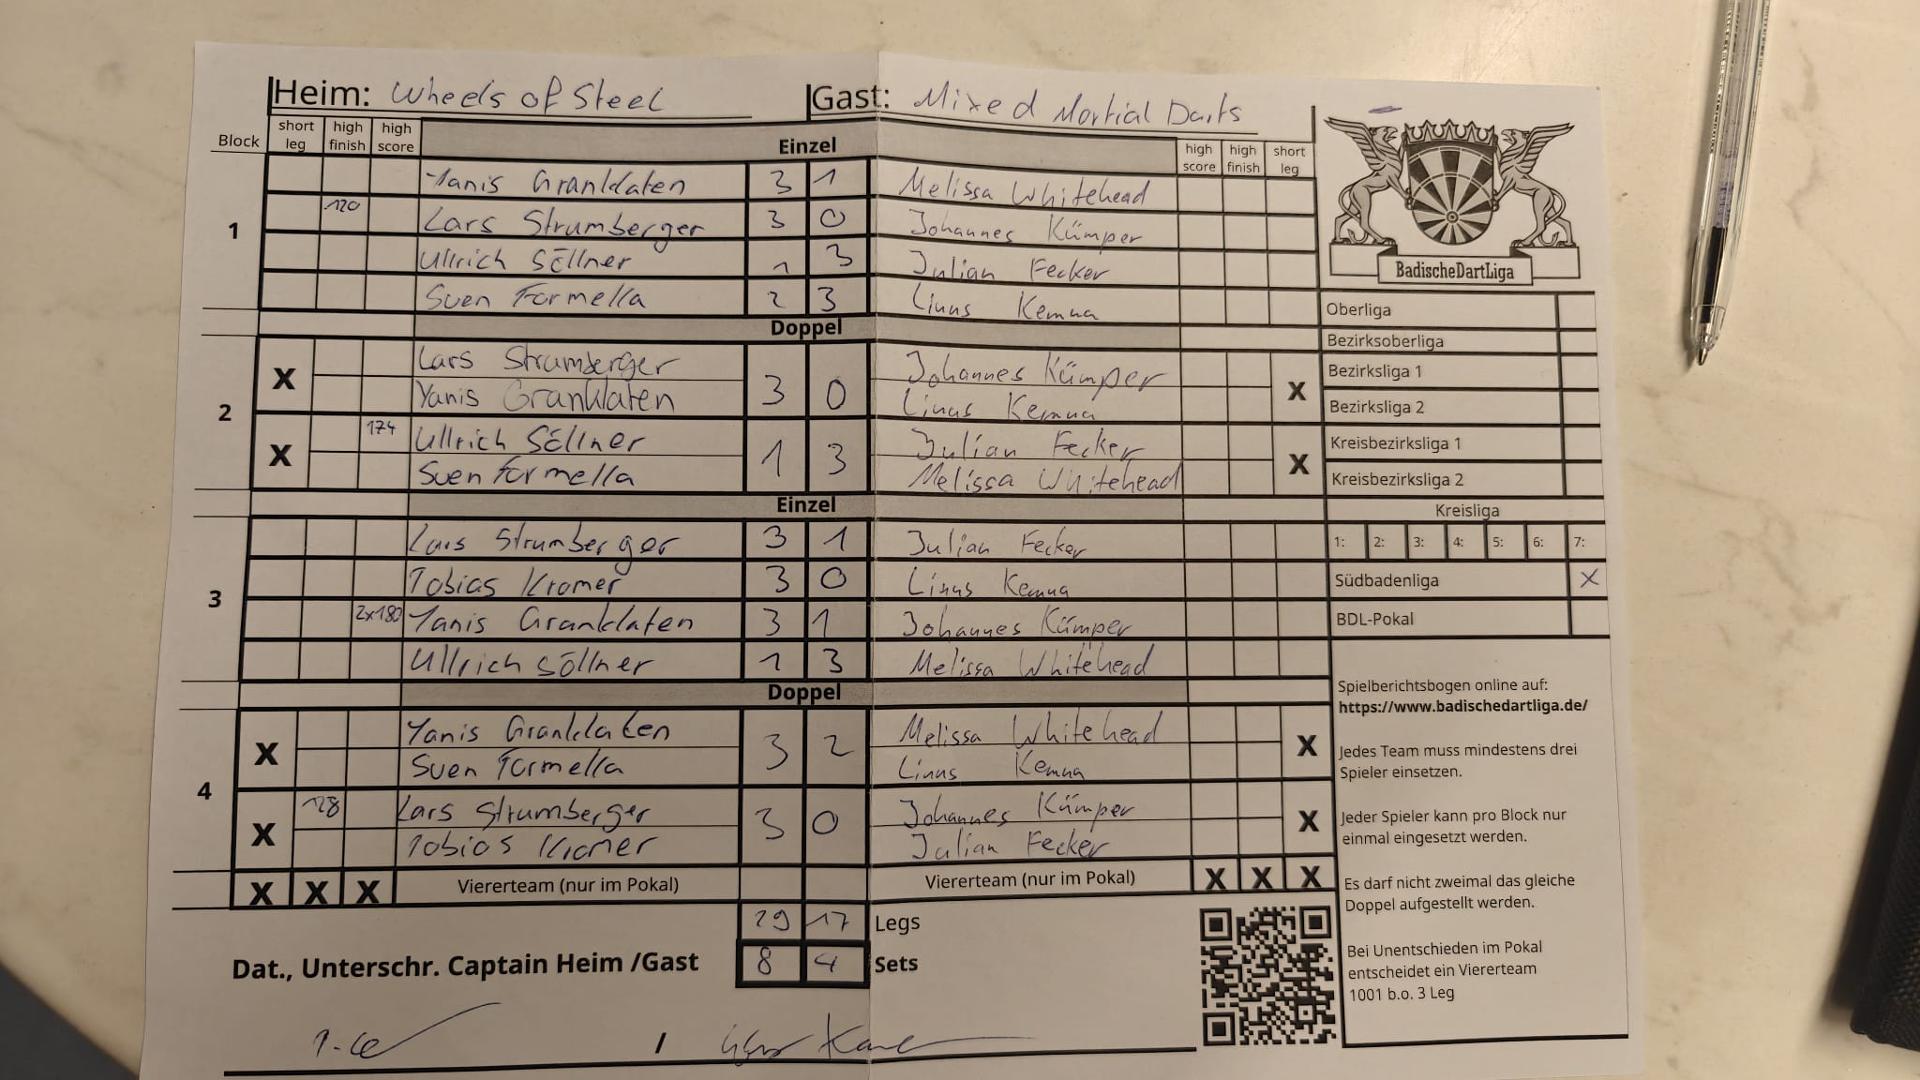 Heim: Wheels of Steel Gast: Mixed Martial Darts
Block short leg high finish high score Einzel high score high finish short leg
1
Yanis Granklaten 3 1 Melissa Whitehead
120 Lars Strumberger 3 0 Johannes Kümper
Ullrich Söllner 1 3 Julian Fecker
Sven Formella 2 3 Linus Kemna
Doppel
2
X Lars Strumberger 3 0 Johannes Kümper X
Yanis Granklaten Linus Kemna
X 174 Ullrich Söllner 1 3 Julian Fecker X
Sven Formella Melissa Whitehead
Einzel
3
Lars Strumberger 3 1 Julian Fecker
Tobias Kromer 3 0 Linus Kemna
2x180 Yanis Granklaten 3 1 Johannes Kümper
Ullrich Söllner 1 3 Melissa Whitehead
Doppel
4
X Yanis Granklaten 3 2 Melissa Whitehead X
Sven Formella Linus Kemna
X 128 Lars Strumberger 3 0 Johannes Kümper X
Tobias Kromer Julian Fecker
X X X Viererteam (nur im Pokal) Viererteam (nur im Pokal) X X X
29 17 Legs
8 4 Sets
Dat., Unterschr. Captain Heim /Gast
/
BadischeDartLiga
Oberliga
Bezirksoberliga
Bezirksliga 1
Bezirksliga 2
Kreisbezirksliga 1
Kreisbezirksliga 2
Kreisliga
1: 2: 3: 4: 5: 6: 7:
Südbadenliga X
BDL-Pokal
Spielberichtsbogen online auf:
https://www.badischedartliga.de/
Jedes Team muss mindestens drei
Spieler einsetzen.
Jeder Spieler kann pro Block nur
einmal eingesetzt werden.
Es darf nicht zweimal das gleiche
Doppel aufgestellt werden.
Bei Unentschieden im Pokal
entscheidet ein Viererteam
1001 b.o. 3 Leg